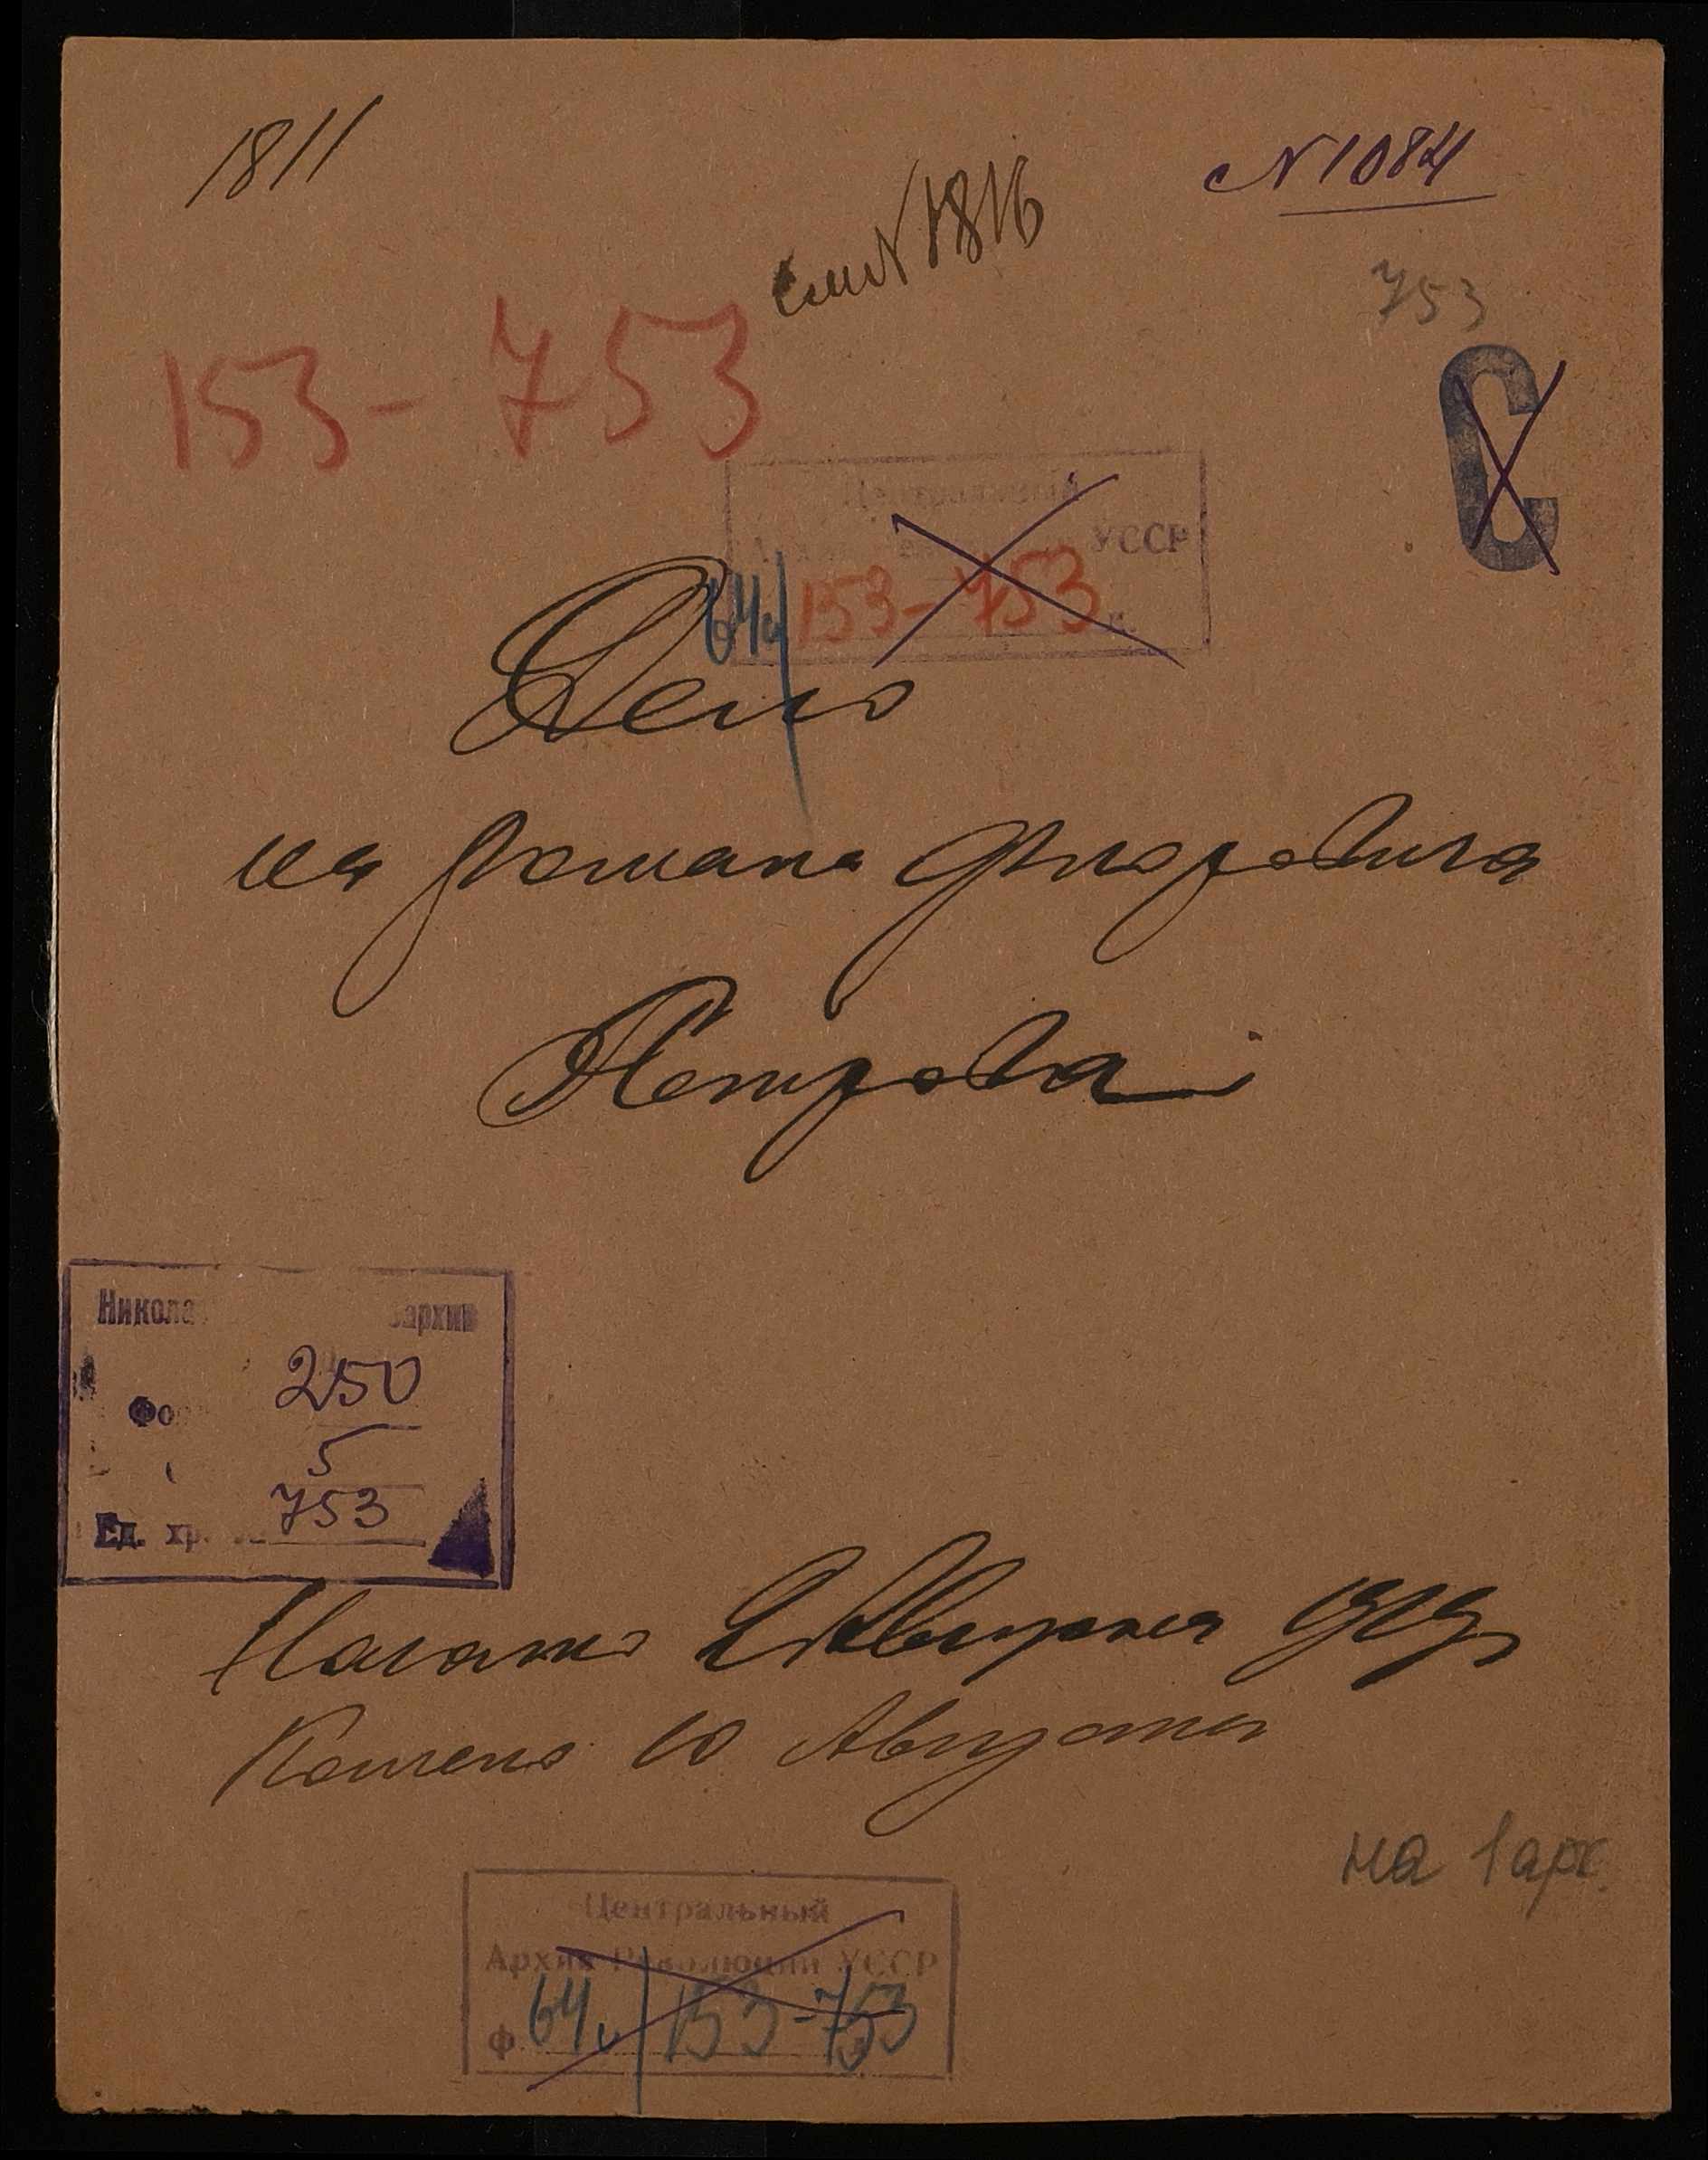 1811
N 1084
см N 1816
753
153-753
С
Центральный
УССР
64ч 153-753
Дело
на Романа Федоровича
Петрова
Никола архив
Фо 250
5
Ед. хр. 753
Начато 2 Августа 1919
Кончено 10 Августа
на 1 арк.
Центральный
Архив Революции УССР
Ф. 64ч 153-753